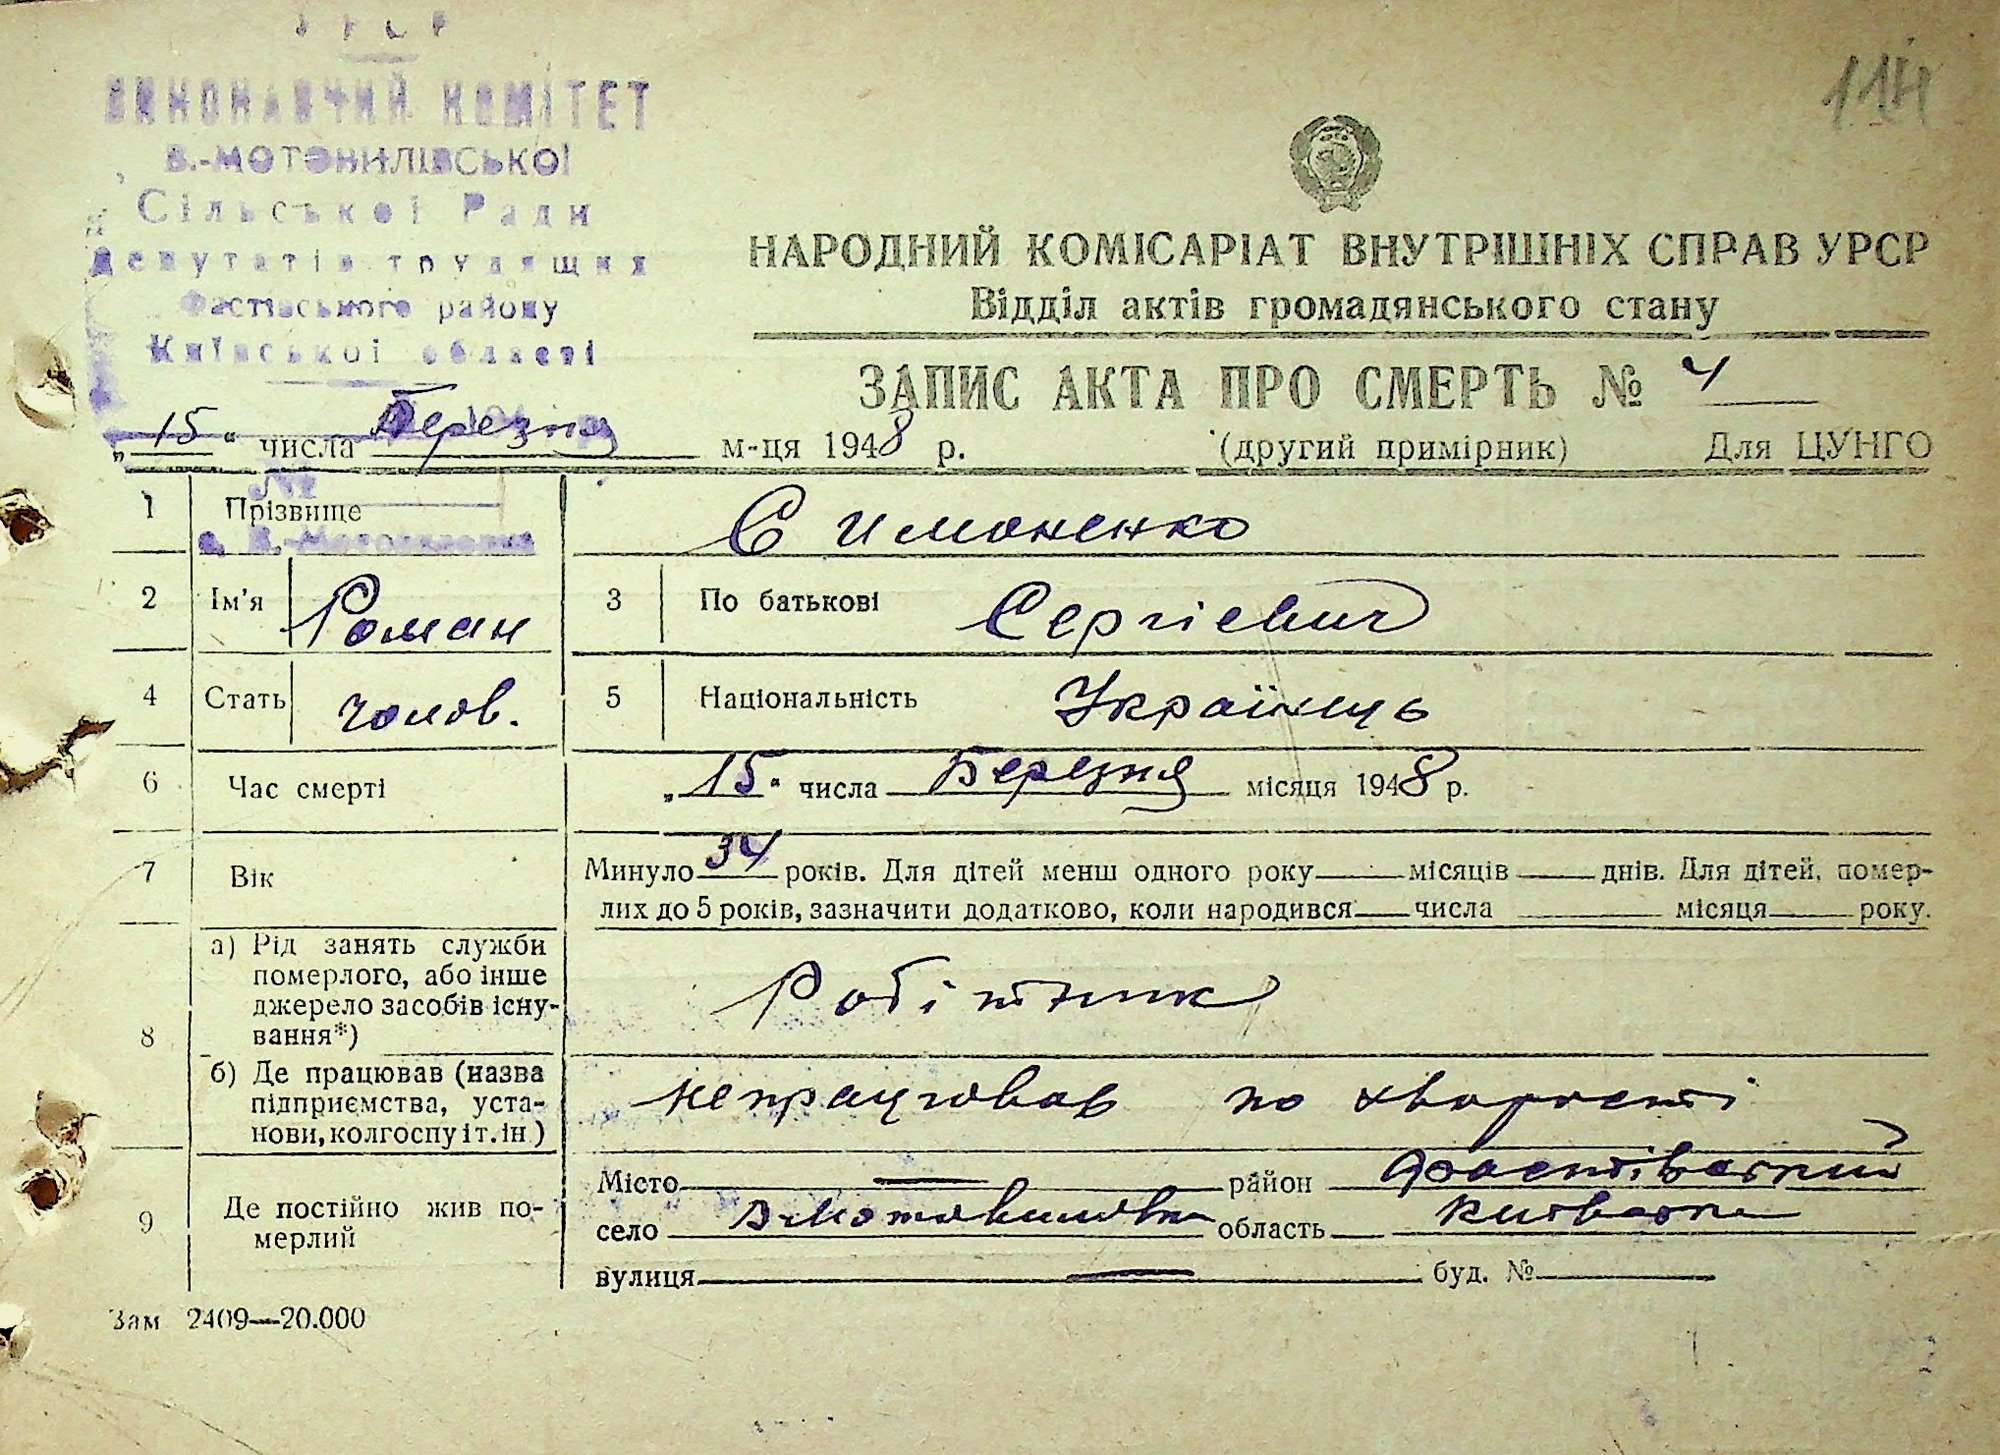 УРСР
ВИКОНАВЧИЙ КОМІТЕТ
В.-МОТОВИЛІВСЬКОІ
Сільської Ради
Депутатів трудящих
Фастівського району
Київської області
114
НАРОДНИЙ КОМІСАРІАТ ВНУТРІШНІХ СПРАВ УРСР
Відділ актів громадянського стану
ЗАПИС АКТА ПРО СМЕРТЬ № 4
„15“ числа Березня м-ця 1948 р. (другий примірник) Для ЦУНГО
1 Прізвище Симоненко
с. В.-Мотовилівка
2 Ім'я Роман 3 По батькові Сергієвич
4 Стать чолов. 5 Національність Українець
6 Час смерті „15“ числа Березня місяця 1948 р.
7 Вік Минуло 34 років. Для дітей менш одного року місяців днів. Для дітей, помер-
лих до 5 років, зазначити додатково, коли народився числа місяця року.
8 а) Рід занять служби
померлого, або інше
джерело засобів існу-
вання*) Робітник
б) Де працював (назва
підприємства, уста-
нови, колгоспу і т. ін.) непрацював по хворості
9 Де постійно жив по-
мерлий
Місто — район Фастівський
село В-Мотовилівка область Київська
вулиця — буд. №
Зам 2409—20.000